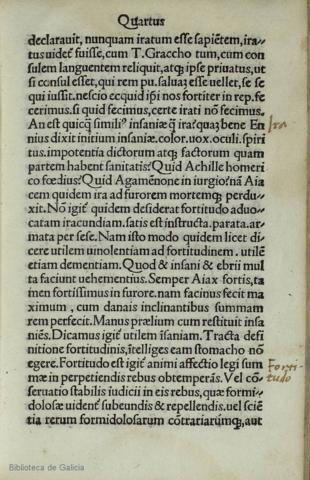 Quartus
declarauit, nunquam iratum esse sapiẽtem, ira-
tus uidet᷑ fuisse, cum T. Graccho tum, cum con
sulem languentem reliquit, atq; ipse priuatus, ut
si consul esset, qui rem pu. saluaz esse uellet, se se
qui iussit. nescio ecquid ip̃i nos fortiter in rep. fe
cerimus. si quid fecimus, certe irati nõ fecimus.
An est quicq̃ simili⁹ insaniæ q̃ ira? quaz bene En
nius dixit initium insaniæ. color. uox. oculi. spiri
tus. impotentia dictorum atq; factorum quam
partem habent sanitatis? Quid Achille homeri
co fœdius? Quid Agamẽnone in iurgio? nã Aia
cem quidem ira ad furorem mortemq; perdu-
xit. Nõ igit᷑ quidem desiderat fortitudo aduo-
catam iracundiam. satis est instructa. parata. ar
mata per sese. Nam isto modo quidem licet di
cere utilem uinolentiam ad fortitudinem. utilẽ
etiam dementiam. Quod & insani & ebrii mul
ta faciunt uehementius. Semper Aiax fortis, ta
men fortissimus in furore. nam facinus fecit ma
ximum, cum danais inclinantibus summam
rem perfecit. Manus prælium cum restituit insa
niẽs. Dicamus igit᷑ utilem ĩsaniam. Tracta defi
nitione fortitudinis, ĩtelliges eam stomacho nõ
egere. Fortitudo est igit᷑ animi affectio legi sum
mæ in perpetiendis rebus obtemperãs. Vel cõ-
seruatio stabilis iudicii in eis rebus, quæ formi-
dolosæ uident᷑ subeundis & repellendis. uel sciẽ
tia rerum formidolosarum cõtrariarũmq;, aut
Ira
Forti-
tudo
Biblioteca de Galicia